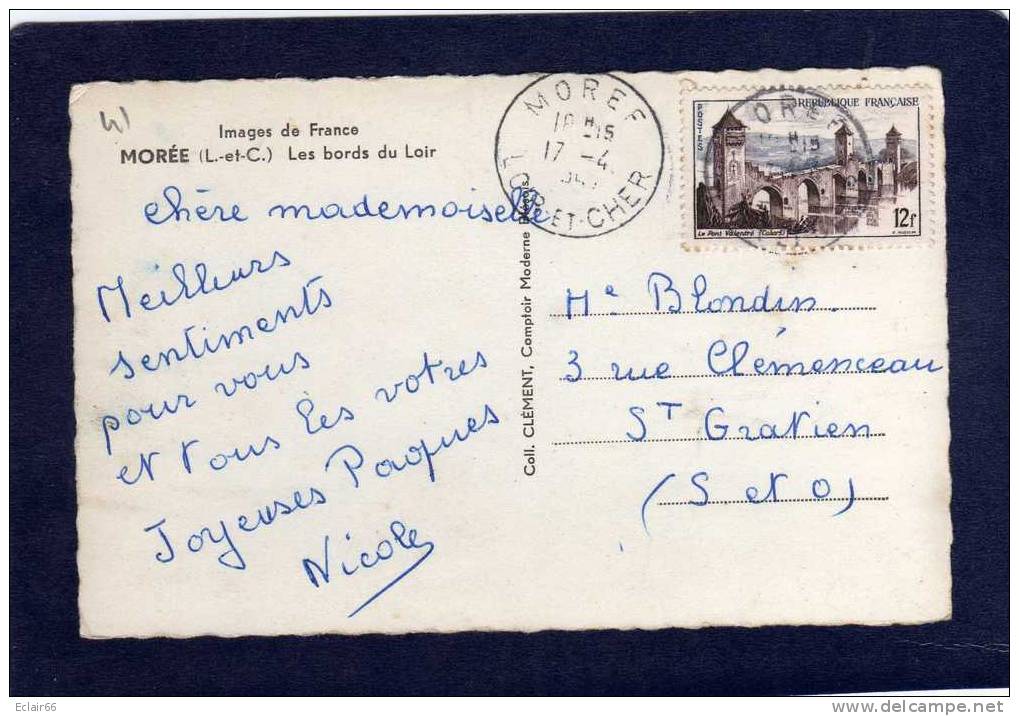 41
Images de France
MORÉE (L.-et-C.) Les bords du Loir
chère mademoiselle
Meilleurs
sentiments
pour vous
et tous les vôtres
Joyeuses Paques
Nicole
Coll. CLÉMENT, Comptoir Moderne Blésois.
MOREE
18H15
17 -4
LOIR-ET-CHER
POSTES
REPUBLIQUE FRANÇAISE
Le Pont Valentré (Cahors)
12f
Me Blondin.
3 rue Clémenceau
ST Gratien
(S et O)
Eclair66